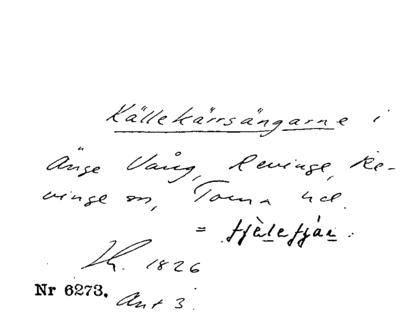 Källekärrsängarne i
Änge Vång, Revinge, Re-
vinge sn, Torna hd.
=
Sk. 1826
Nr 6273. Ant 3.